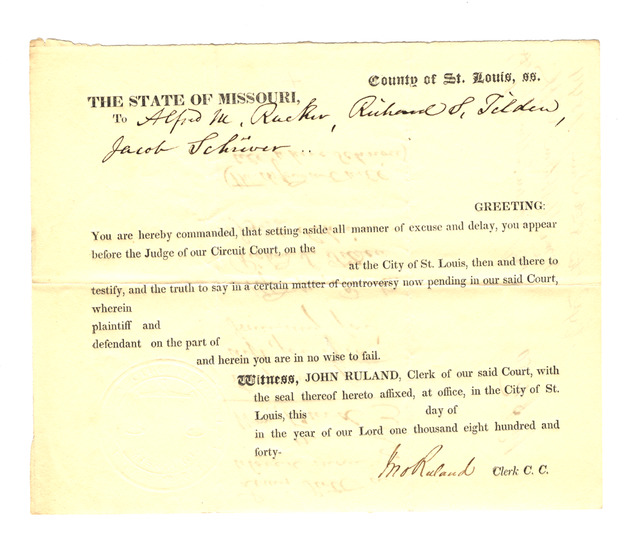 County of St. Louis, ss.
THE STATE OF MISSOURI,
To Alfred M. Rucker, Richard S. Tilden,
Jacob Schriver..
GREETING:
You are hereby commanded, that setting aside all manner of excuse and delay, you appear
before the Judge of our Circuit Court, on the
at the City of St. Louis, then and there to
testify, and the truth to say in a certain matter of controversy now pending in our said Court,
wherein
plaintiff and
defendant on the part of
and herein you are in no wise to fail.
Witness, JOHN RULAND, Clerk of our said Court, with
the seal thereof hereto affixed, at office, in the City of St.
Louis, this day of
in the year of our Lord one thousand eight hundred and
forty-
Jno Ruland Clerk C. C.